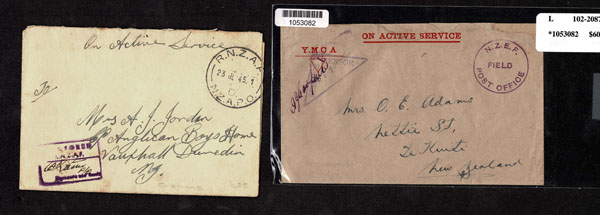 On Active Service
R.N.Z.A.F.
23 JL 45.
N.Z.A.P.O.
To
Mrs A. J. Jordan
Anglican Boys Home
Vauxhall Dunedin
N.Z.
1053082
ON ACTIVE SERVICE
Y.M.C.A
N.Z.E.F.
FIELD
POST OFFICE
Mrs. O. E. Adams
Hettie St,
Te Kuiti
New Zealand
L 102-2087
*1053082 $60